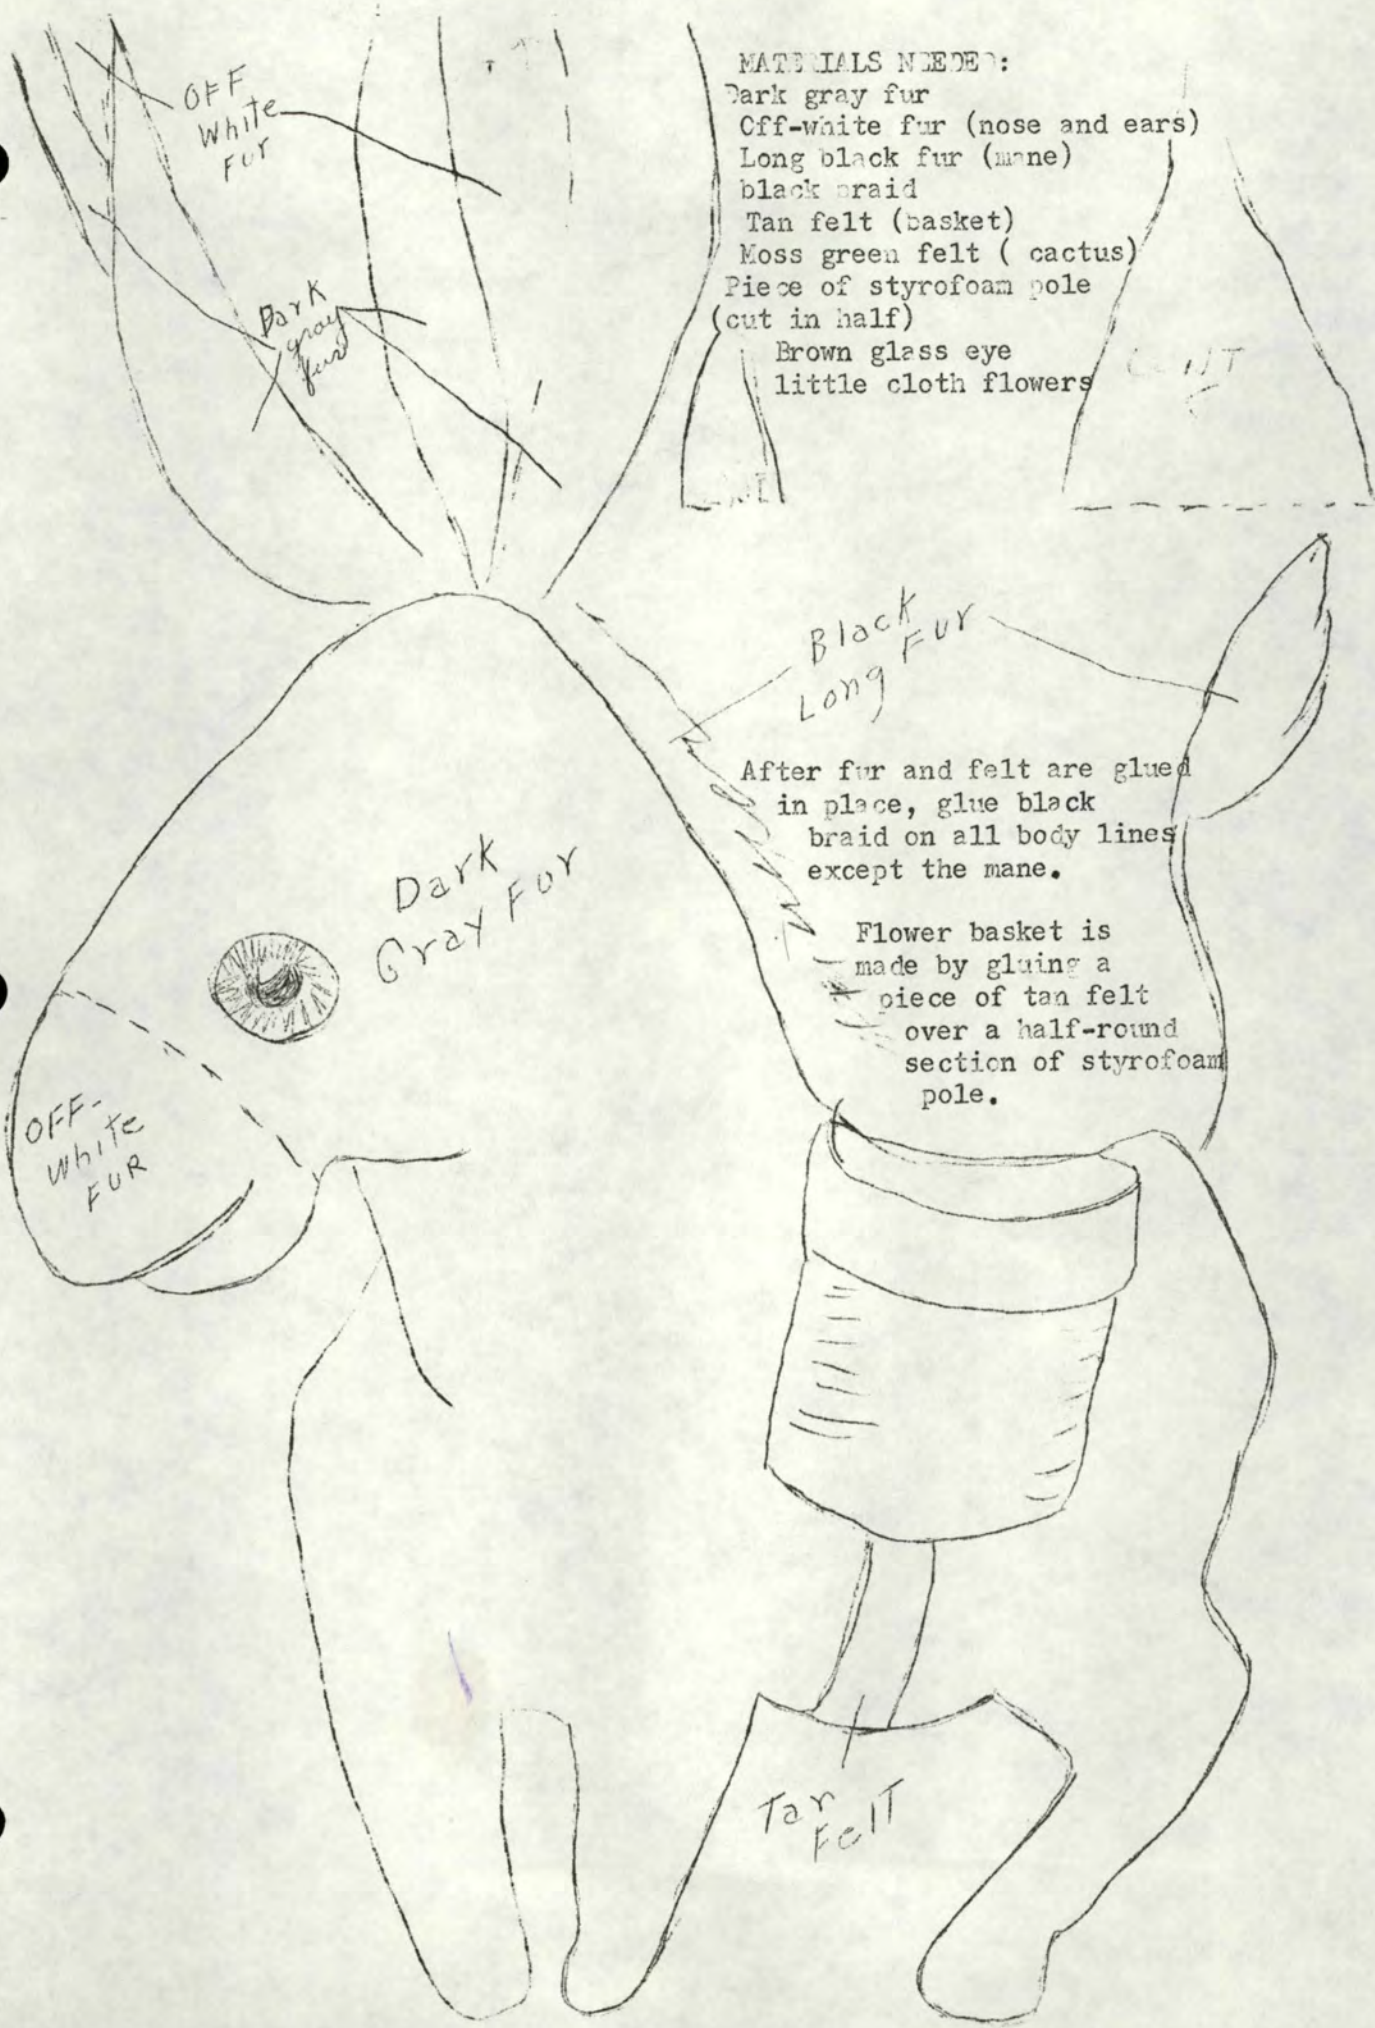 MATERIALS NEEDED:
Dark gray fur
Off-white fur (nose and ears)
Long black fur (mane)
black braid
Tan felt (basket)
Moss green felt ( cactus)
Piece of styrofoam pole
(cut in half)
Brown glass eye
little cloth flowers
OFF
White
FUR
Dark
gray
fur
CONT
Black
Long FUR
After fur and felt are glued
in place, glue black
braid on all body lines
except the mane.
Dark
Gray FUR
Flower basket is
made by gluing a
piece of tan felt
over a half-round
section of styrofoam
pole.
OFF-
White
FUR
Tan
FelT